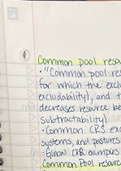 Common pool resou
• "Common pool res
for which the exclu
excludability), and t
decreases resource be
subtractability)
• Common CPRs exa
systems, and pastures
• Global CPR
Common Pool resourc